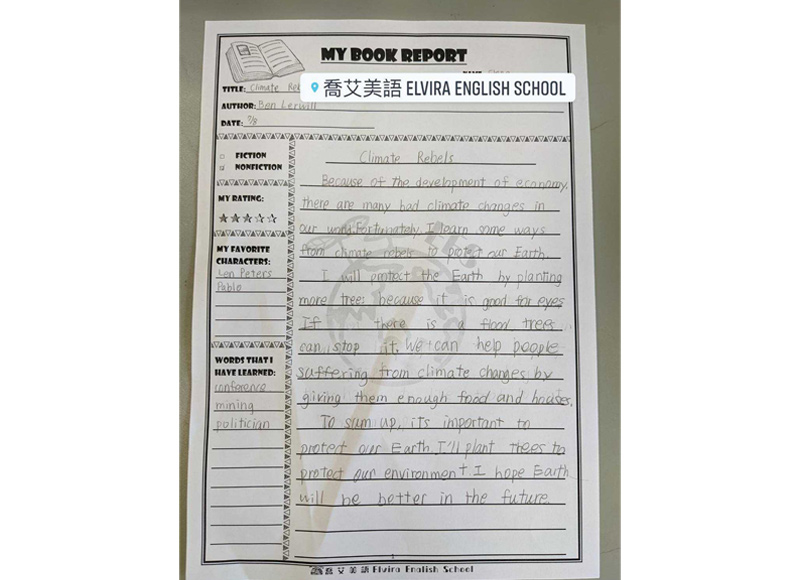 MY BOOK REPORT
喬艾美語 ELVIRA ENGLISH SCHOOL
TITLE: Climate
AUTHOR: Ben Lerwill
DATE: 7/8
FICTION
NONFICTION
MY RATING:
MY FAVORITE
CHARACTERS:
Len Peters
Pablo
WORDS THAT I
HAVE LEARNED:
conference
mining
politician
Climate Rebels
Because of the development of economy,
there are many bad climate changes in
our world. Fortunately, I learn some ways
from climate rebels to protect our Earth.
I will protect the Earth by planting
more trees because it is good for eyes
If there is a flood trees
can stop it. We can help people
suffering from climate changes by
giving them enough food and houses.
To sum up, its important to
protect our Earth. I'll plant trees to
protect our environment. I hope Earth
will be better in the future.
喬艾美語 Elvira English School